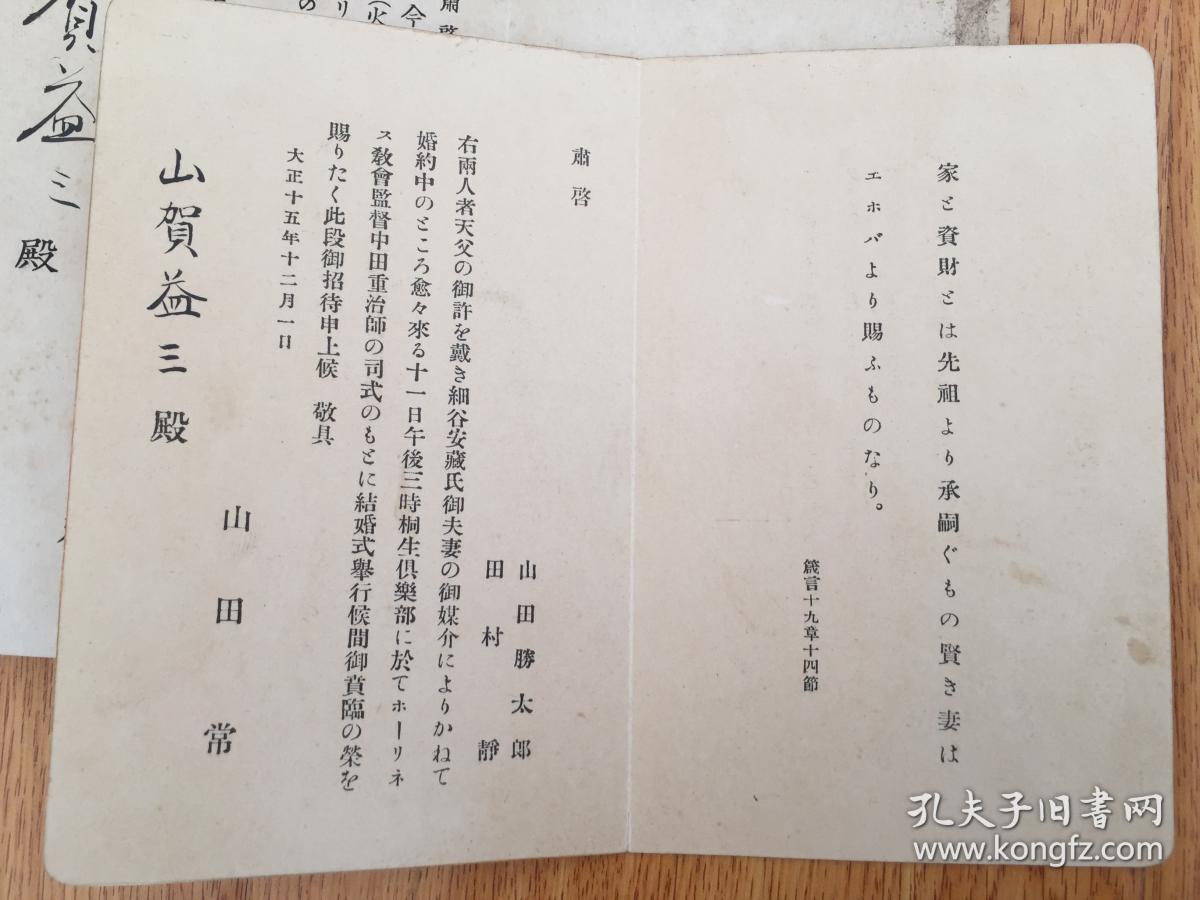 家と資財とは先祖より承嗣ぐもの賢き妻は
エホバより賜ふものなり。
箴言十九章十四節
肅啓
山田勝太郎
田村靜
右兩人者天父の御許を戴き細谷安藏氏御夫妻の御媒介によりかねて
婚約中のところ愈々來る十一日午後三時桐生俱樂部に於てホーリネ
ス敎會監督中田重治師の司式のもとに結婚式擧行候間御賁臨の榮を
賜りたく此段御招待申上候 敬具
大正十五年十二月一日
山田常
山賀益三殿
肅啓
今
(火
リ
の
賀益三殿
孔夫子旧书网
www.kongfz.com